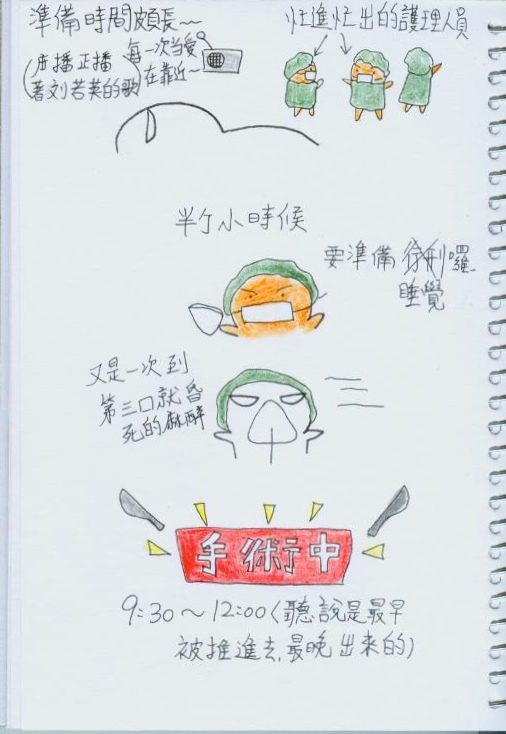 準備時間頗長~~
忙進忙出的護理人員
每一次當愛
在靠近~
播正播
著刘若英的歌
半個小時候
要準備
囉
睡覺
又是一次到
第三口就昏
死的麻醉
手術中
9:30~12:00(聽說是最早
被推進去,最晚出來的)